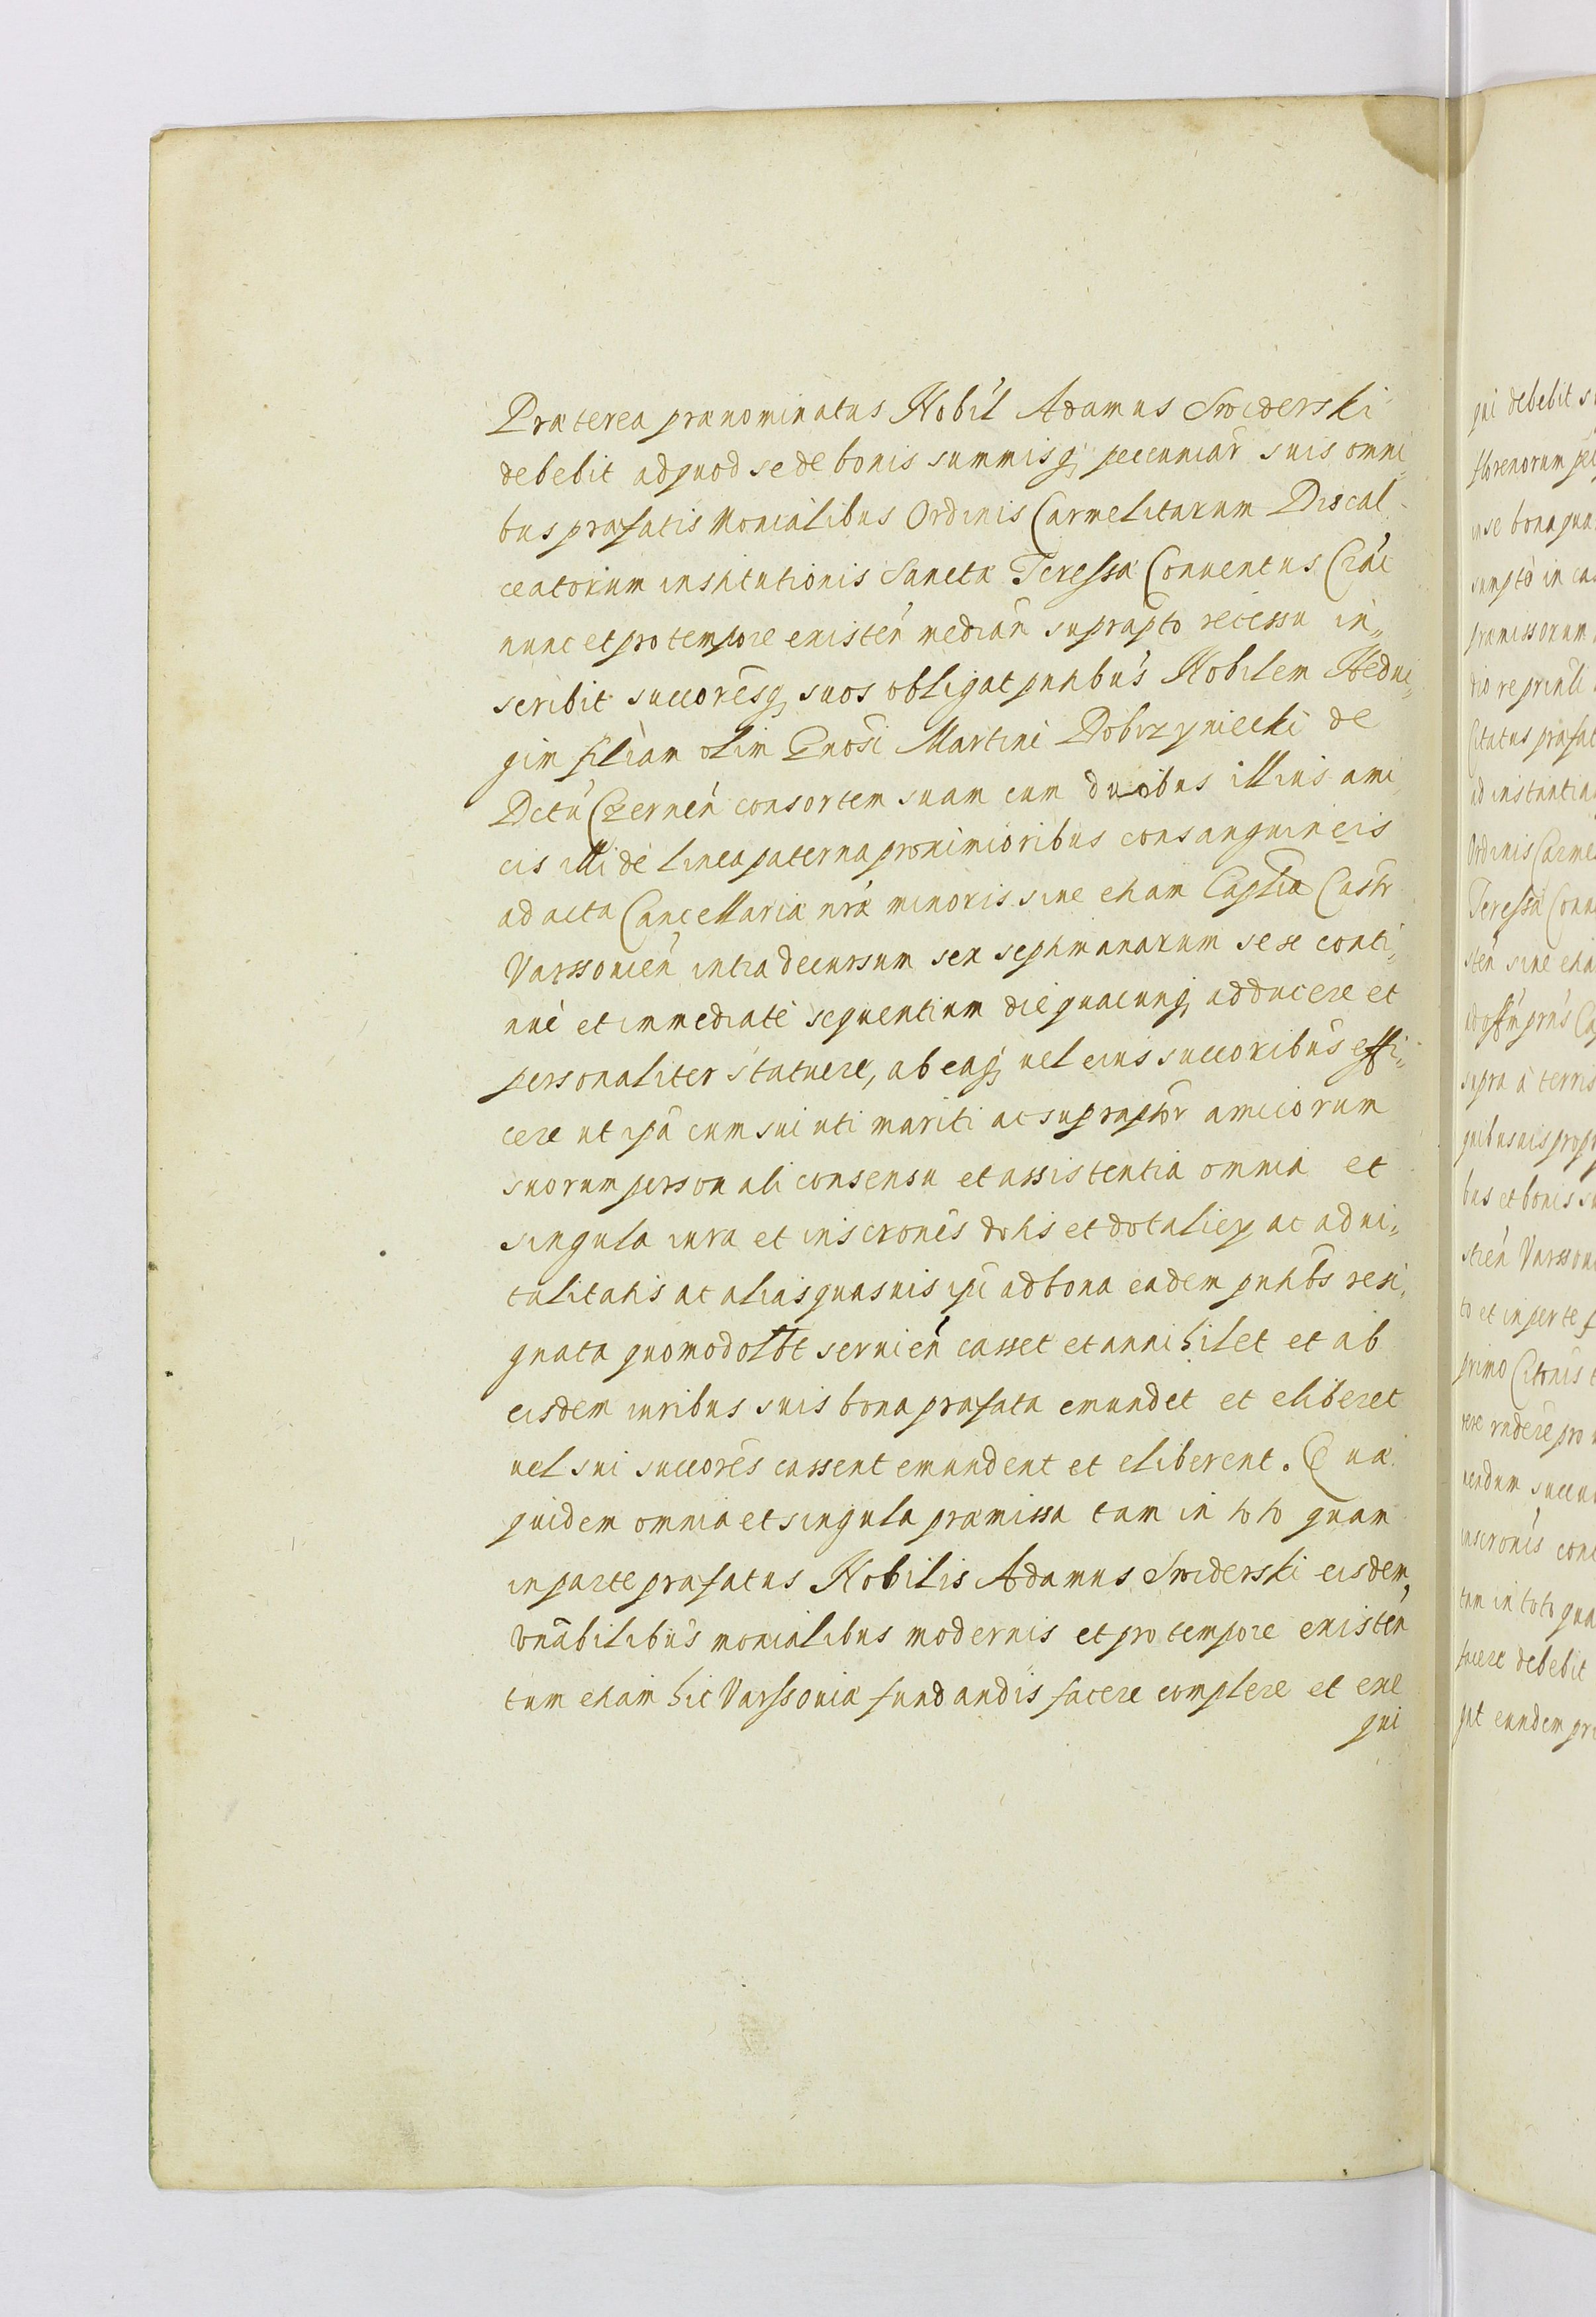 Præterea prænominatus Nobil Adamus Swiderski
debebit ad quod se de bonis summisq pecuniar suis omni,
bus præfatis Monialibus Ordinis Carmelitarum Discal-
ceatorum institutionis Sanctæ Teressæ Conuentus Crac
nunc et pro tempore existen̄ median̄ suprapto recessu in,,
scribit succoresq suos obligat pntibus Nobilem Hedui,,
gim filiam olim Gnosi Martini Dobrzyniecki de
Dctu Czernen̄ consortem suam cum duobus illius ami,
cis illi de linea paterna proximioribus consanguineis
ad acta Cancellariæ nræ minoris siue etiam Caplia Castr
Varssouien̄ intra decursum sex septimanarum sese conti,,
nuè et immediatè sequentium die quacunq adducere et
personaliter statuere, ab eaq uel eius succoribus effi,,
cere ut ipa cum sui uti mariti ac supraptor amicorum
suorum personali consensu et assistentia omnia et
singula iura et inscrones dotis et dotalicy ac adui,,
talitatis ac alias quasuis ipi ad bona eadem pntibs resi,
gnata quomodolbt seruien̄ casset et annihilet et ab
eisdem iuribus suis bona præfata emundet et eliberet
uel sui succores cassent emundent et eliberent. Quæ
quidem omnia et singula præmissa tam in toto quam
in parte præfatus Nobilis Adamus Swiderski eisdem,
Vnabilibus monialibus modernis et pro tempore existen̄
tum etiam hic Varssouiæ fundandis facere complere et exe
qui
qui debebit
in se bona
Ordinis
Teressæ
supra à terris
primo
tam in toto
facere debebit
eundem